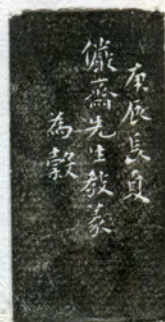 庚辰長夏
儼齋先生教篆
為穀